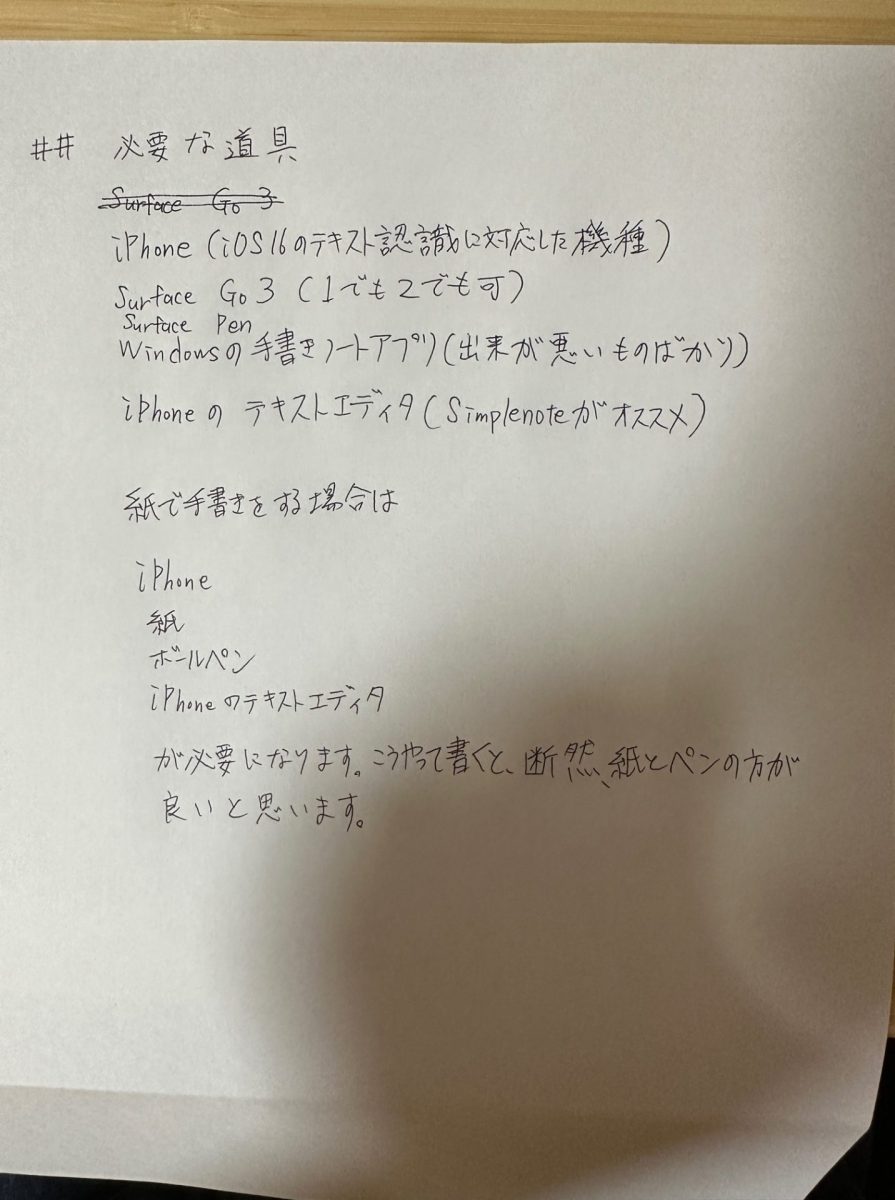 ## 必要な道具
Surface Go 3
iPhone (iOS16のテキスト認識に対応した機種)
Surface Go 3 (1でも2でも可)
Surface Pen
Windowsの手書きノートアプリ(出来が悪いものばかり)
iPhoneの テキストエディタ(Simplenoteがオススメ)
紙で手書きをする場合は
iPhone
紙
ボールペン
iPhoneのテキストエディタ
が必要になります。こうやって書くと、断然、紙とペンの方が
良いと思います。